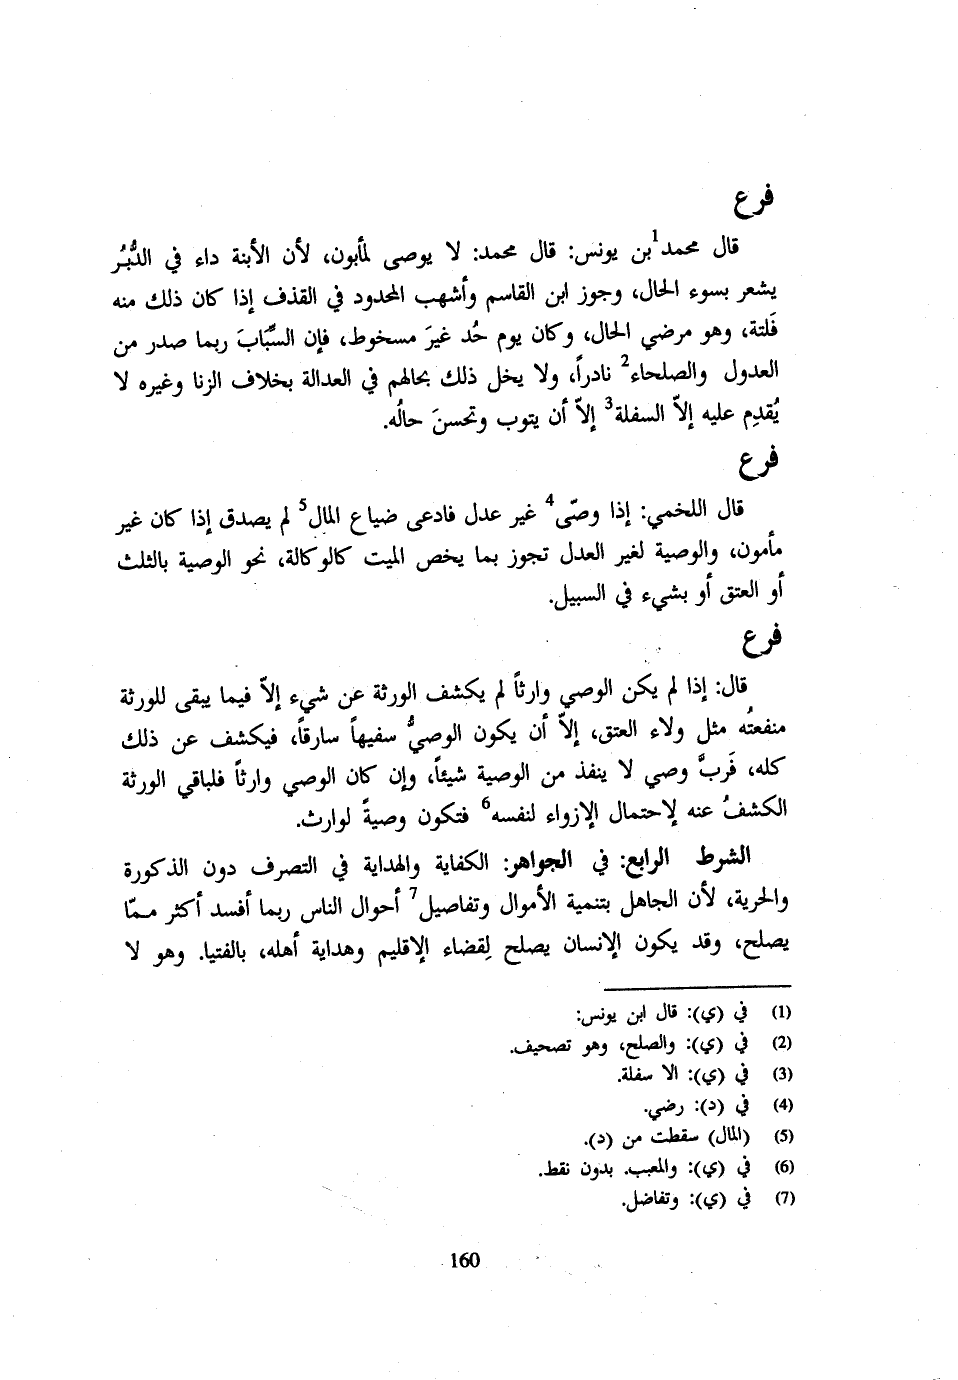 فرع
قال محمد1 بن يونس: قال محمد: لا يوصى لمأبون، لأن الأبنة داء في الدُّبُر
يشعر بسوء الحال، وجوز ابن القاسم وأشهب المحدود في القذف إذا كان ذلك منه
فَلتة، وهو مرضي الحال، وكان يوم حُد غيرَ مسخوط، فإن السِّبَابَ ربما صدر من
العدول والصلحاء2 نادراً، ولا يخل ذلك بحالهم في العدالة بخلاف الزنا وغيره لا
يُقدِم عليه إلاّ السفلة3 إلاّ أن يتوب وتحسنَ حالُه.
فرع
قال اللخمي: إذا وصّى4 غير عدل فادعى ضياع المال5 لم يصدق إذا كان غير
مأمون، والوصية لغير العدل تجوز بما يخص الميت كالوكالة، نحو الوصية بالثلث
أو العتق أو بشيء في السبيل.
فرع
قال: إذا لم يكن الوصي وارثاً لم يكشف الورثة عن شيء إلاّ فيما يبقى للورثة
منفعتُه مثل ولاء العتق، إلاّ أن يكون الوصيُّ سفيهاً سارقاً، فيكشف عن ذلك
كله، فَربَّ وصي لا ينفذ من الوصية شيئاً، وإن كان الوصي وارثاً فلباقي الورثة
الكشفُ عنه لإحتمال الإزواء لنفسه6 فتكون وصيةً لوارث.
الشرط الرابع: في الجواهر: الكفاية والهداية في التصرف دون الذكورة
والحرية، لأن الجاهل بتنمية الأموال وتفاصيل7 أحوال الناس ربما أفسد أكثر ممّا
يصلح، وقد يكون الإنسان يصلح لِقضاء الإقليم وهداية أهله، بالفتيا. وهو لا
(1) في (ي): قال ابن يونس:
(2) في (ي): والصلح، وهو تصحيف.
(3) في (ي): الا سفلة.
(4) في (د): رضي.
(5) (المال) سقطت من (د).
(6) في (ي): والمعبب. بدون نقط.
(7) في (ي): وتفاضل.
160